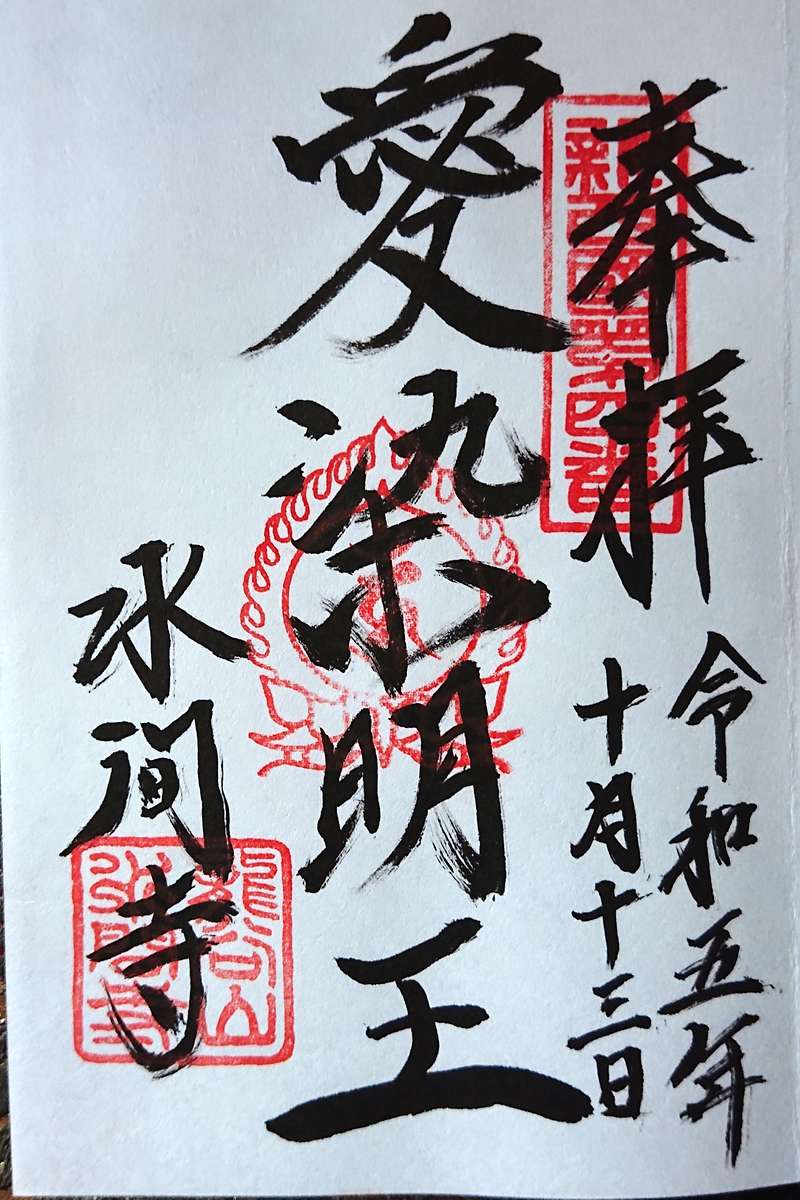 奉拝
令和五年
十月十三日
愛染明王
水間寺